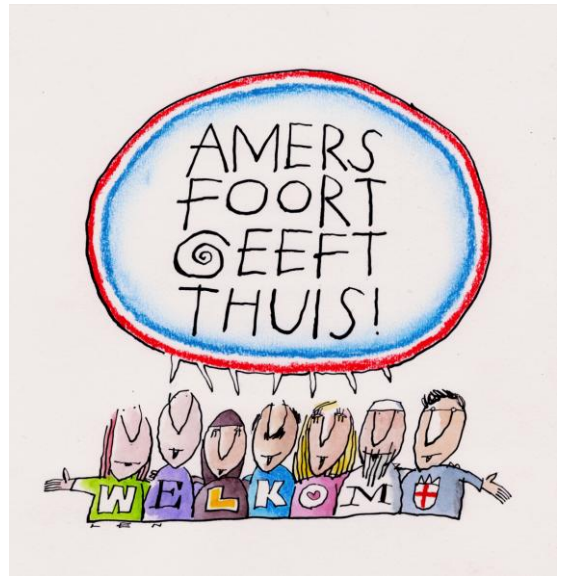 AMERS
FOORT
GEEFT
THUIS!
WELKOM
LEN